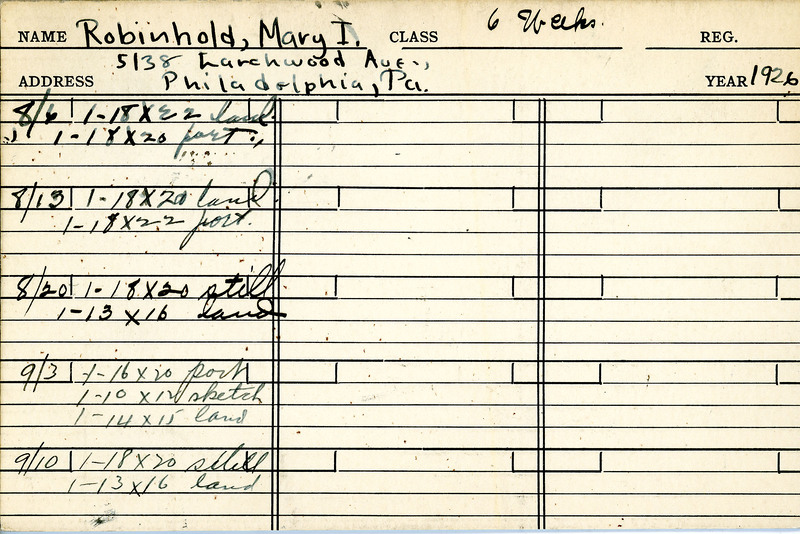 NAME Robinhold, Mary I. CLASS 6 Weeks. REG.
5138 Larchwood Ave.,
ADDRESS Philadelphia, Pa. YEAR 1926
8/6 1-18X22 land.
1-18X20 port.
8/13 1-18X20 land.
1-18X22 port.
8/20 1-18X20 still
1-13X16 land
9/3 1-16X20 port
1-10X12 sketch
1-14X15 land
9/10 1-18X20 still
1-13X16 land